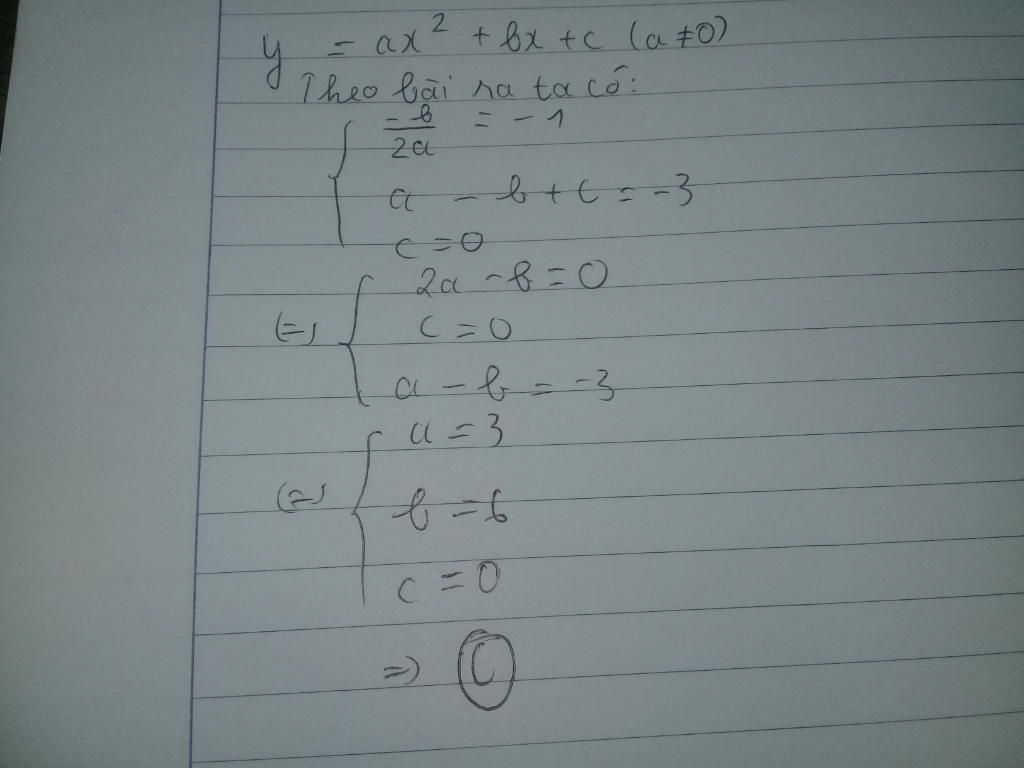 y = ax² + bx + c (a ≠ 0)
Theo bài ra ta có:
{ -b/2a = -1
a - b + c = -3
c = 0
(=) { 2a - b = 0
c = 0
a - b = -3
(=) { a = 3
b = 6
c = 0
=) C